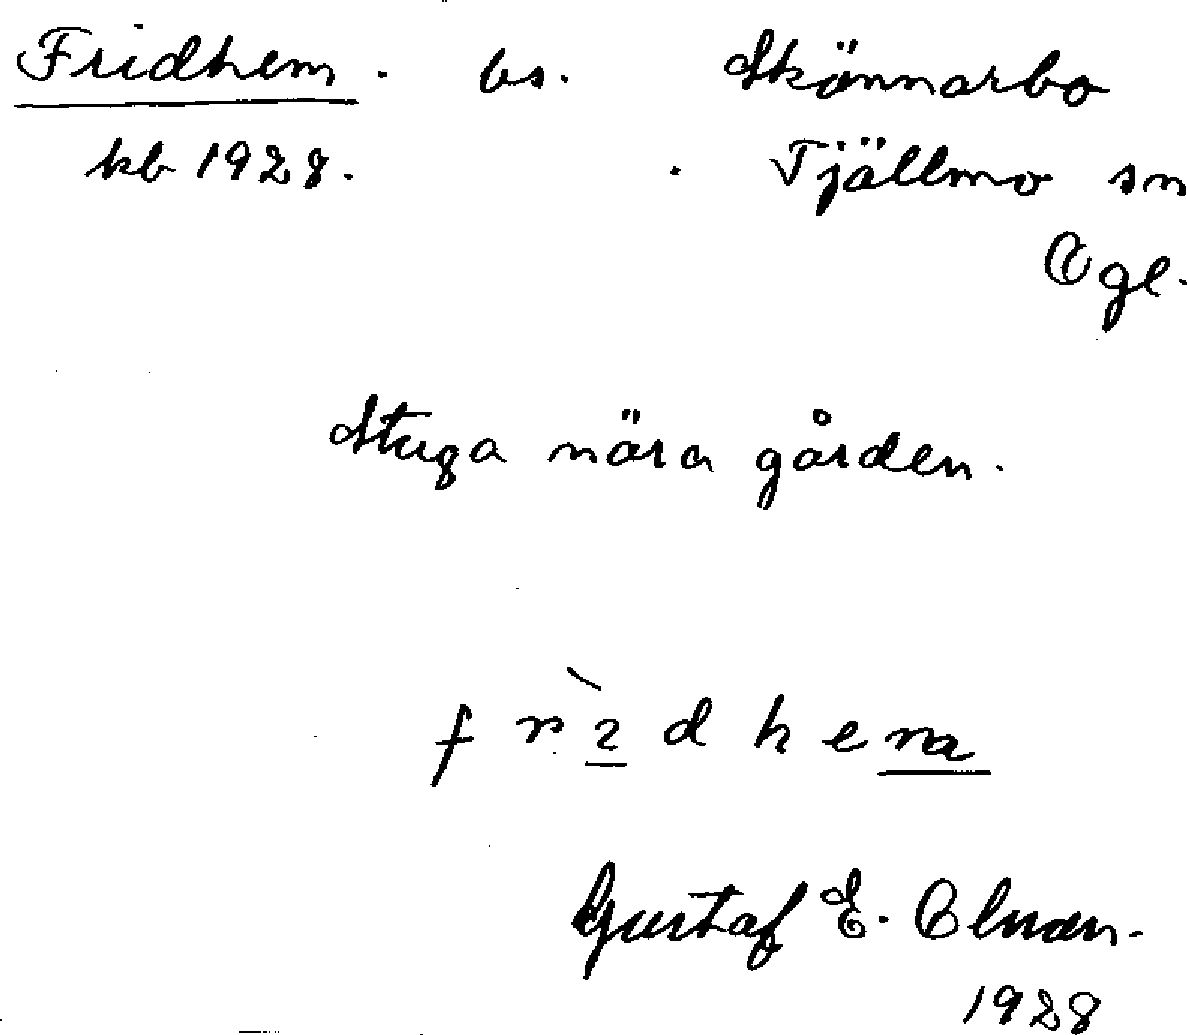 Fridhem. bs. Skönnarbo
kb 1928. Tjällmo sn
Ögl.
Stuga nära gården.
frìdhem
Gustaf E.
1928